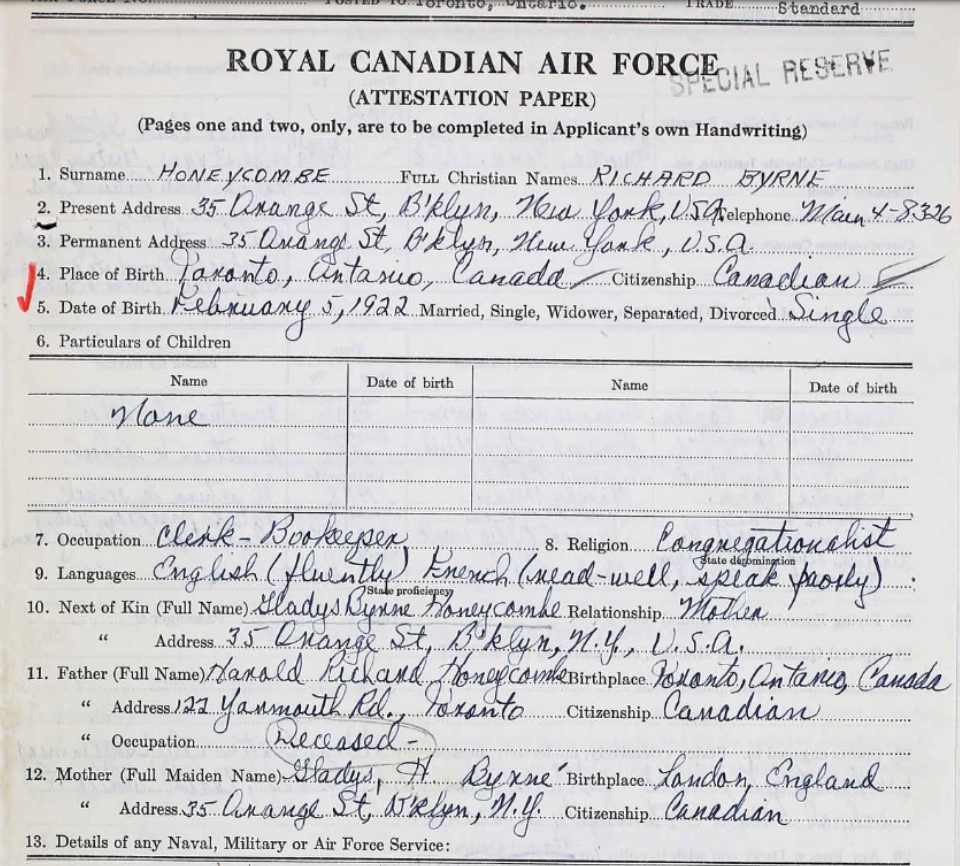 POSTED TO Toronto, Ontario. TRADE Standard
ROYAL CANADIAN AIR FORCE
SPECIAL RESERVE
(ATTESTATION PAPER)
(Pages one and two, only, are to be completed in Applicant's own Handwriting)
1. Surname HONEYCOMBE FULL Christian Names RICHARD BYRNE
2. Present Address 35 Orange St, B'klyn, New York, USA Telephone Main 4-8326
3. Permanent Address 35 Orange St, B'klyn, New York, U.S.A.
4. Place of Birth Toronto, Ontario, Canada Citizenship Canadian
5. Date of Birth February 5, 1922 Married, Single, Widower, Separated, Divorced Single
6. Particulars of Children
Name Date of birth Name Date of birth
None
7. Occupation Clerk - Bookeeper 8. Religion Congregationalist
State denomination
9. Languages English (fluently) French (read-well, speak poorly)
State proficiency
10. Next of Kin (Full Name) Gladys Byrne Honeycombe Relationship Mother
" Address 35 Orange St, B'klyn, N.Y., U.S.A.
11. Father (Full Name) Harold Richard Honeycombe Birthplace Toronto, Ontario, Canada
" Address 122 Yarmouth Rd., Toronto Citizenship Canadian
" Occupation Deceased -
12. Mother (Full Maiden Name) Gladys, H. Byrne Birthplace London, England
" Address 35 Orange St, B'klyn, N.Y. Citizenship Canadian
13. Details of any Naval, Military or Air Force Service: